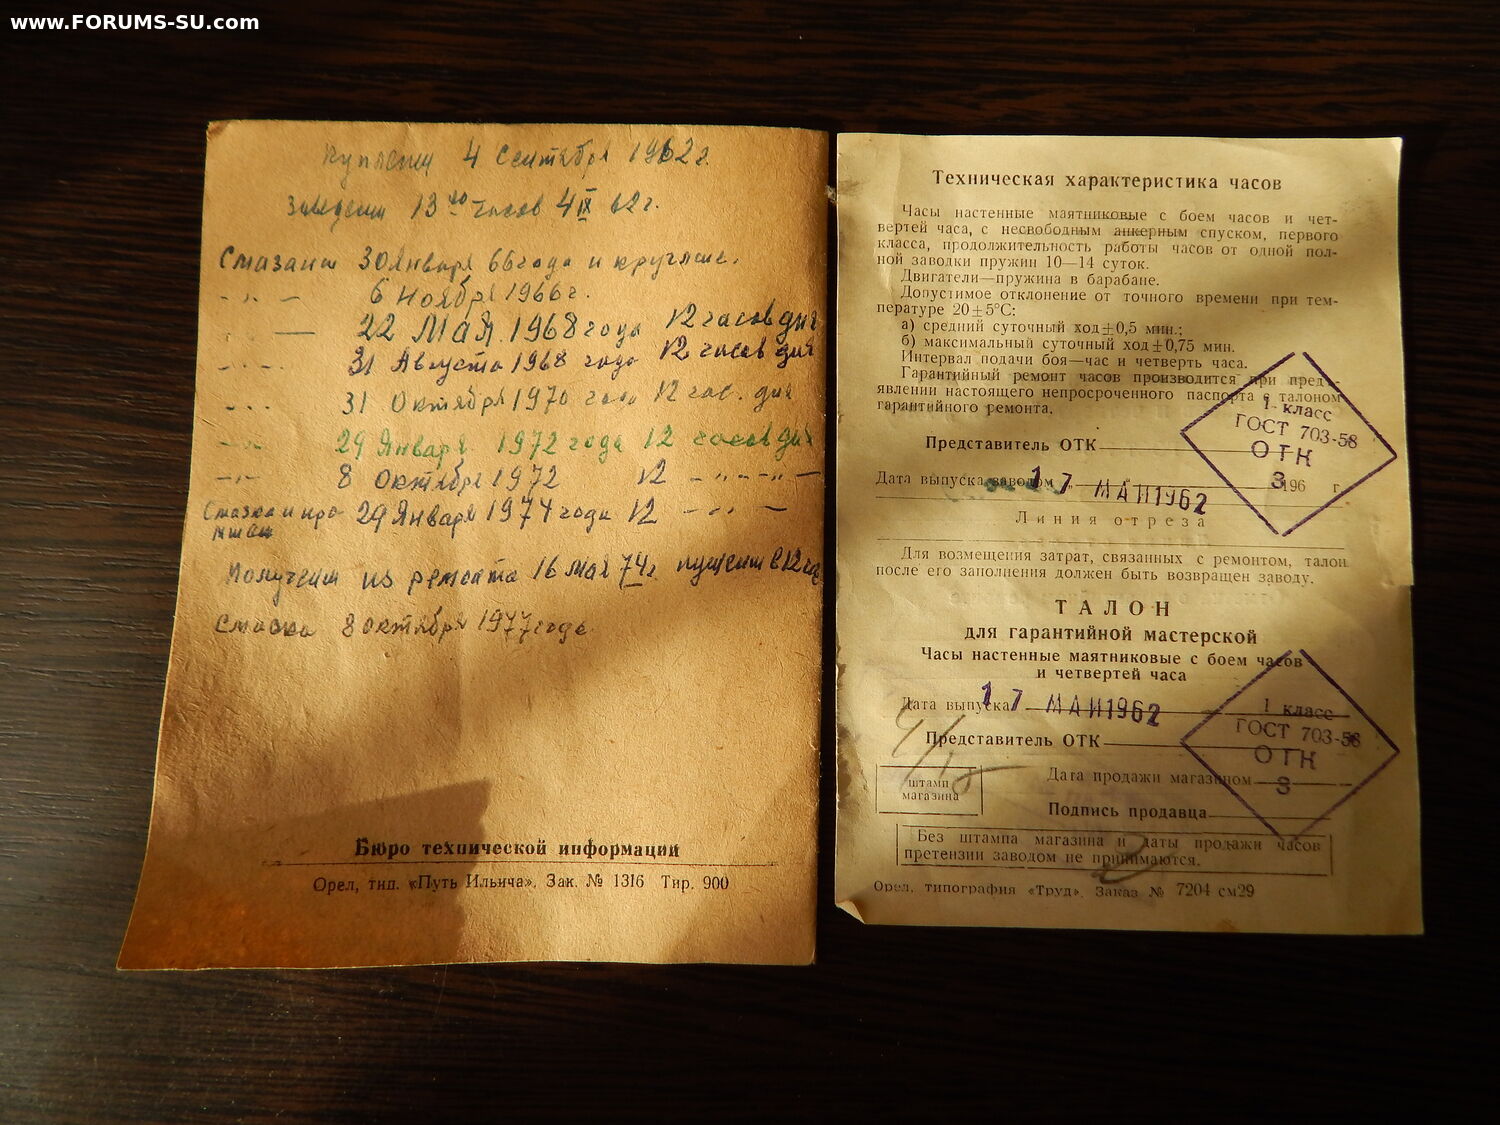 www.FORUMS-SU.com
Куплены 4 Сентября 1962г.
Заведены 13 00 часов 4 IX 62г.
Смазаны 30 Января 66 года и круглые.
- " - 6 Ноября 1966 г.
- " - 22 Мая 1968 года 12 часов дня
- " - 31 Августа 1968 года 12 часов дня
- " - 31 Октября 1970 года 12 час. дня
- " - 29 Января 1972 года 12 часов дня
- " - 8 Октября 1972 12 - " - " -
Смазка и про 29 Января 1974 года 12 - " -
Получены из ремонта 16 мая 74г. пущены в 12 час
Смазка 8 октября 1977 года
Бюро технической информации
Орел, тип. «Путь Ильича». Зак. № 1316 Тир. 900
Техническая характеристика часов
Часы настенные маятниковые с боем часов и чет-
вертей часа, с несвободным анкерным спуском, первого
класса, продолжительность работы часов от одной пол-
ной заводки пружин 10—14 суток.
Двигатели—пружина в барабане.
Допустимое отклонение от точного времени при тем-
пературе 20±5°С:
а) средний суточный ход±0,5 мин.;
б) максимальный суточный ход±0,75 мин.
Интервал подачи боя—час и четверть часа.
Гарантийный ремонт часов производится при предъ-
явлении настоящего непросроченного паспорта с талоном
гарантийного ремонта.
I класс
ГОСТ 703-58
ОТК
3
Представитель ОТК
Дата выпуска заводом 17 МАЙ 1962 196 г.
Линия отреза
Для возмещения затрат, связанных с ремонтом, талон
после его заполнения должен быть возвращен заводу.
ТАЛОН
для гарантийной мастерской
Часы настенные маятниковые с боем часов
и четвертей часа
Дата выпуска 17 МАЙ 1962
I класс
ГОСТ 703-58
ОТК
3
Представитель ОТК
штамп
магазина
Дата продажи магазином
Подпись продавца
Без штампа магазина и даты продажи часов
претензии заводом не принимаются.
Орел, типография «Труд». Заказ № 7204 см29